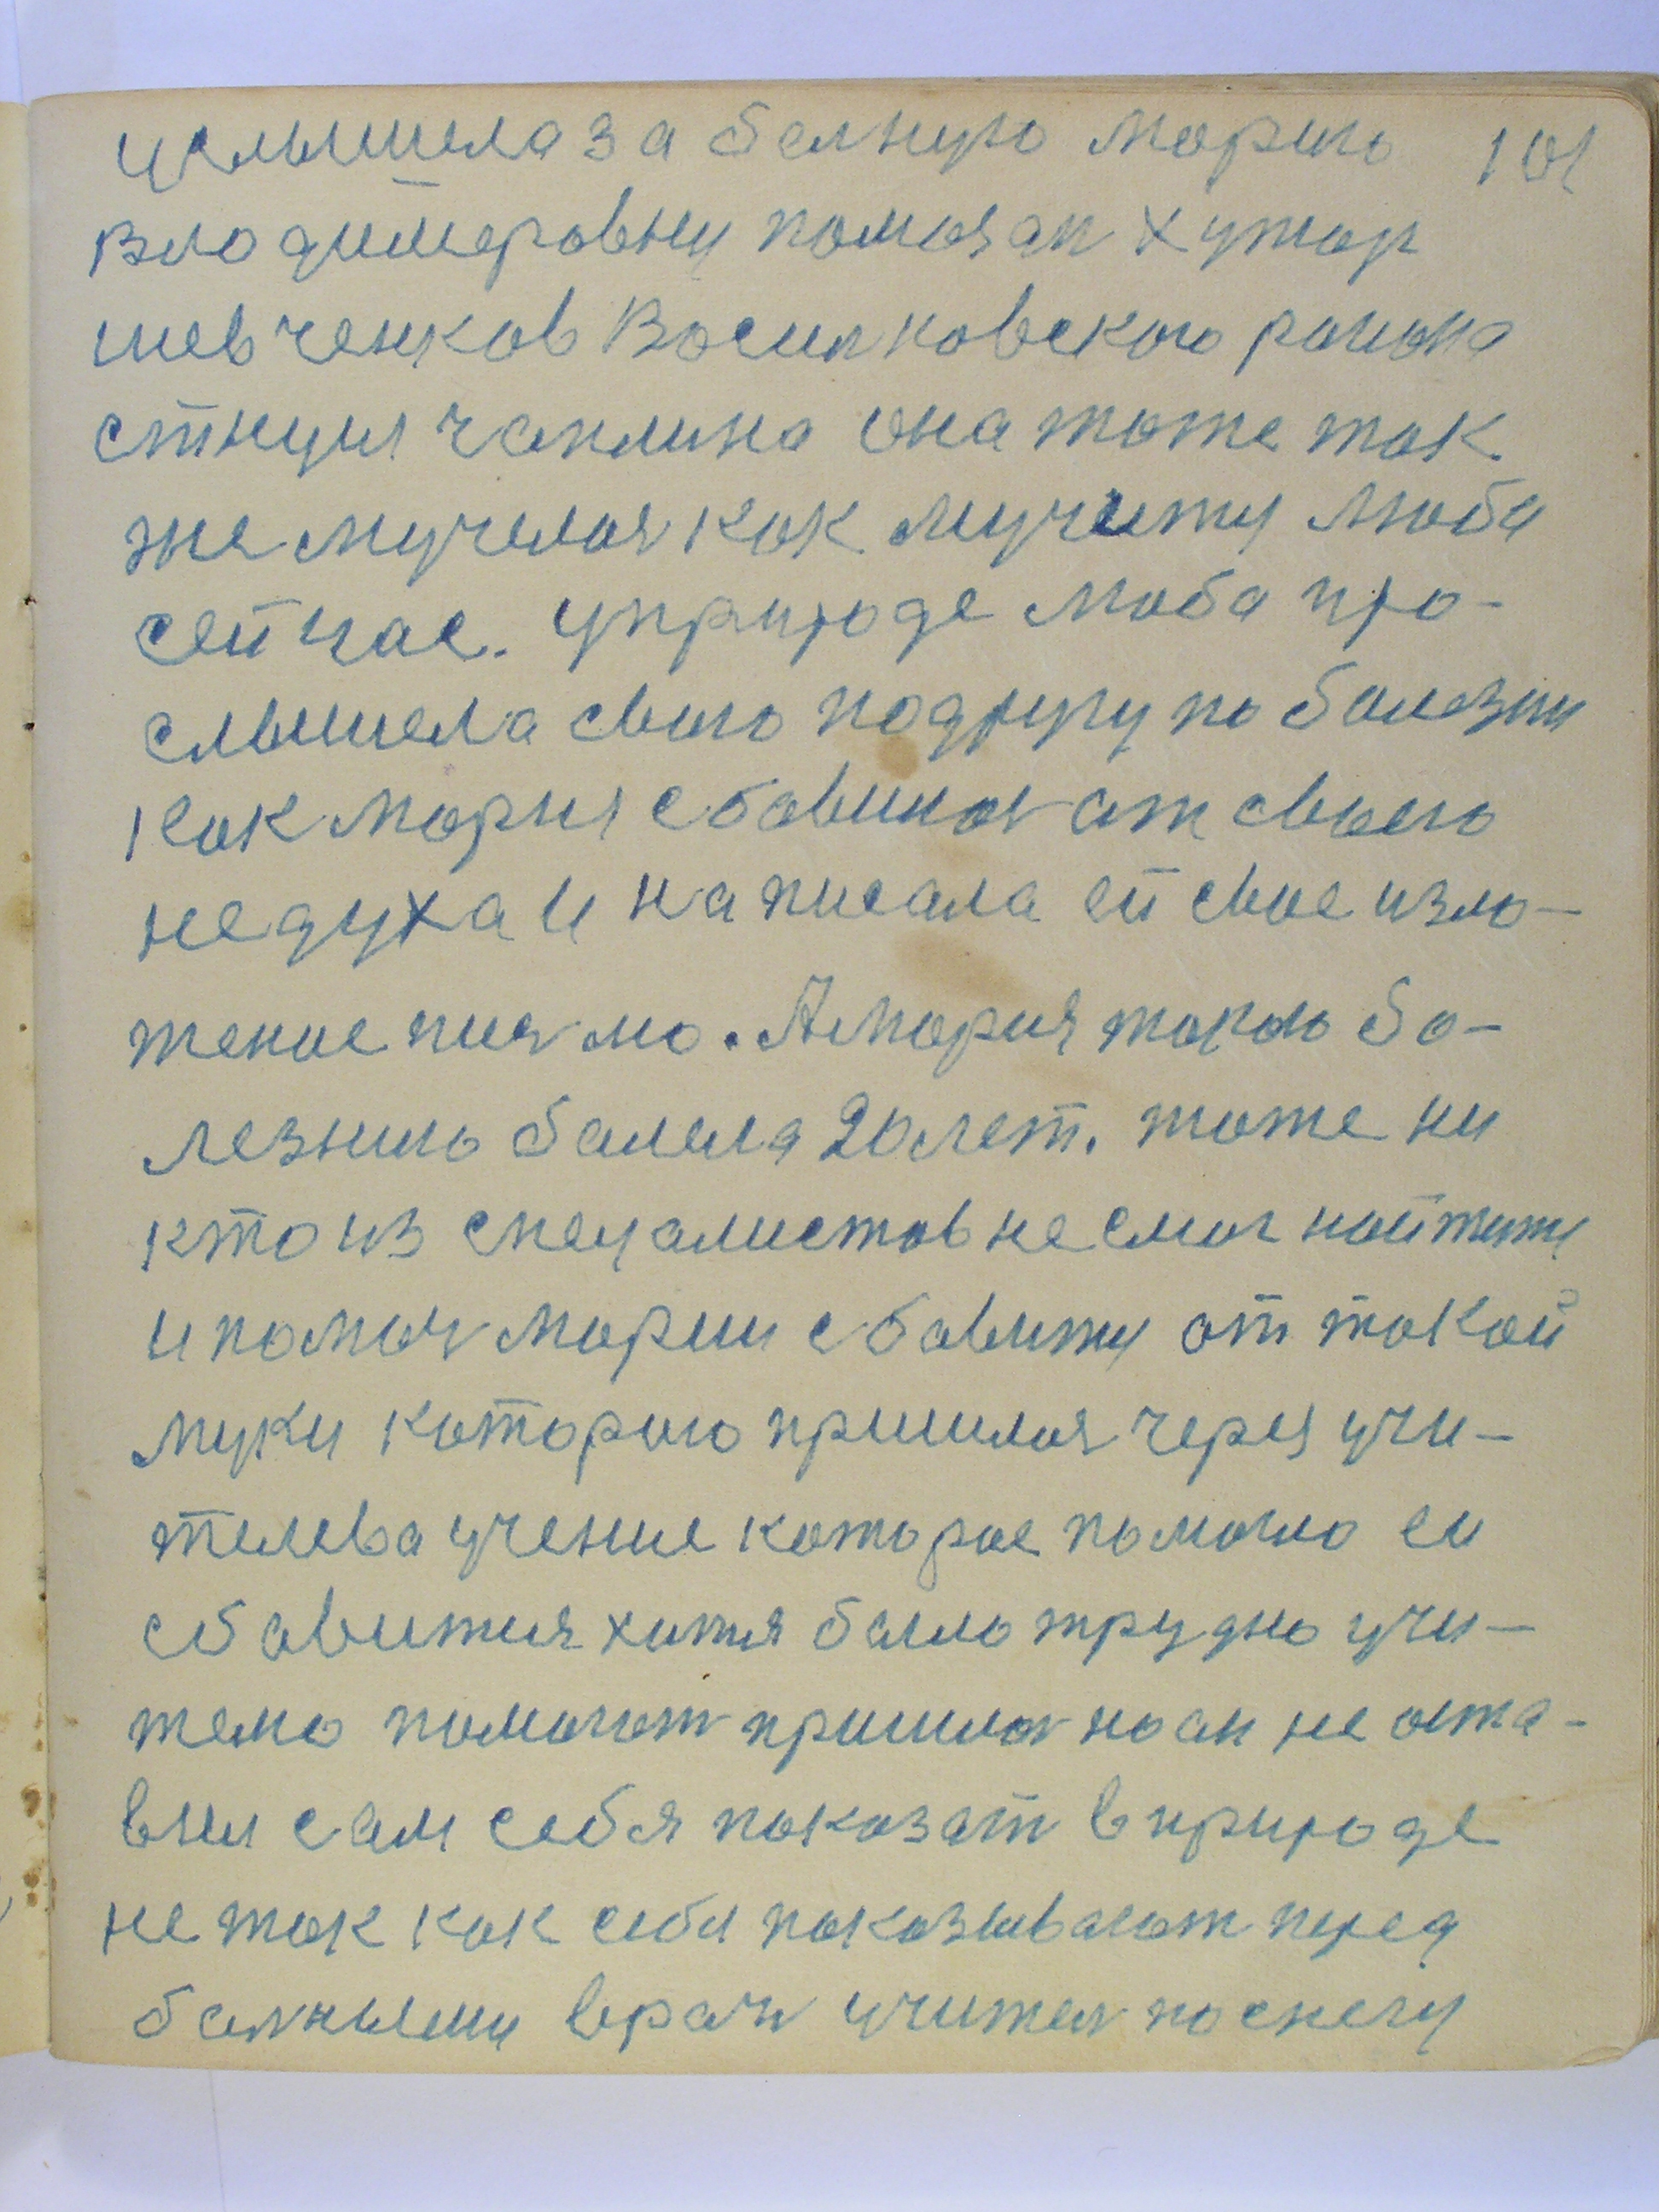 услышела за балную Марию 101
Владимеровну помазан хутор
шевченков Васильковского района
стнцыя чаплина она тоже так
же мучелас как мучиту Люба
сейчас. Уприроде Люба про-
слышела свою подругу по болезни
как Мария сбавилас от своего
недуха и написала ей свое изло-
жение писмо. А Мария такою бо-
лезнию балела 20 лет. тоже ни
кто из спецалистов не смог найтить
и помоч Марии сбавить от такой
муки которою пришлос через учи-
телева учение которое помогло ей
сбавится хотя было трудно учи-
телю помогат пришлос но он не оста-
вил сам себя показат в природе
не так как себя показывают перед
балными врачи учител по снегу